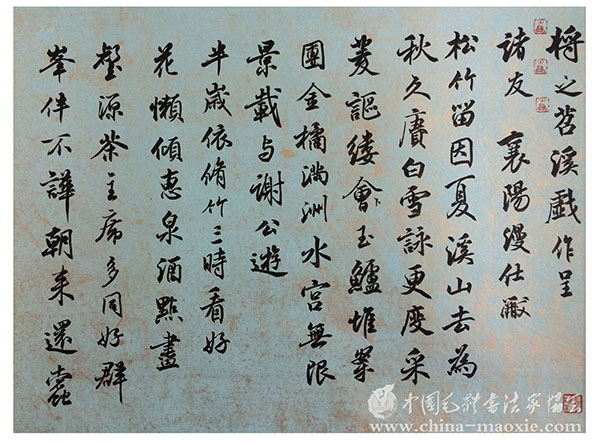 將之苕溪戲作呈
諸友 襄陽漫仕黻
松竹留因夏溪山去為
秋久賡白雪詠更度采
菱謳縷會玉鱸堆案
團金橘滿洲水宮無限
景載与謝公遊
半歲依脩竹三時看好
花懶傾惠泉酒點盡
壑源茶主席多同好群
峯伴不譁朝来還蠹
中国毛体书法家协会
www.china-maoxie.com